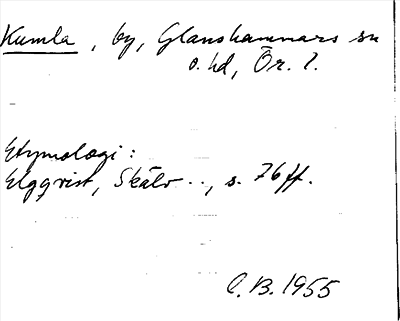 Kumla, by, Glanshammars sn
o. hd, Ör. l.
Etymologi:
Elgqvist, Skälv.., s. 76ff.
C.B. 1955